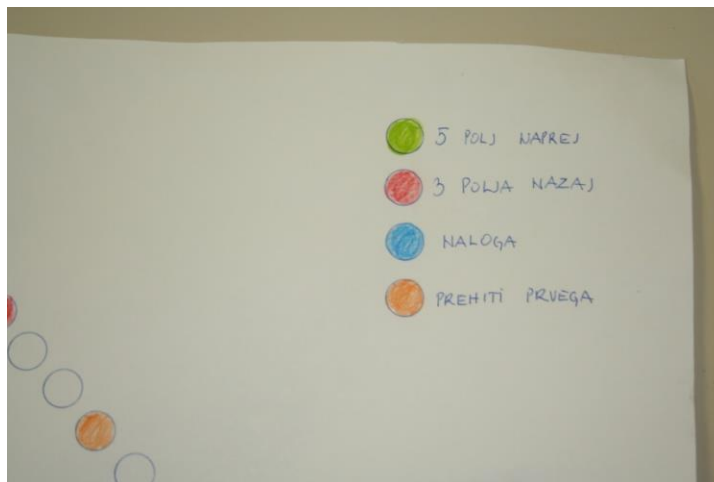 5 POLJ NAPREJ
3 POLJA NAZAJ
NALOGA
PREHITI PRVEGA